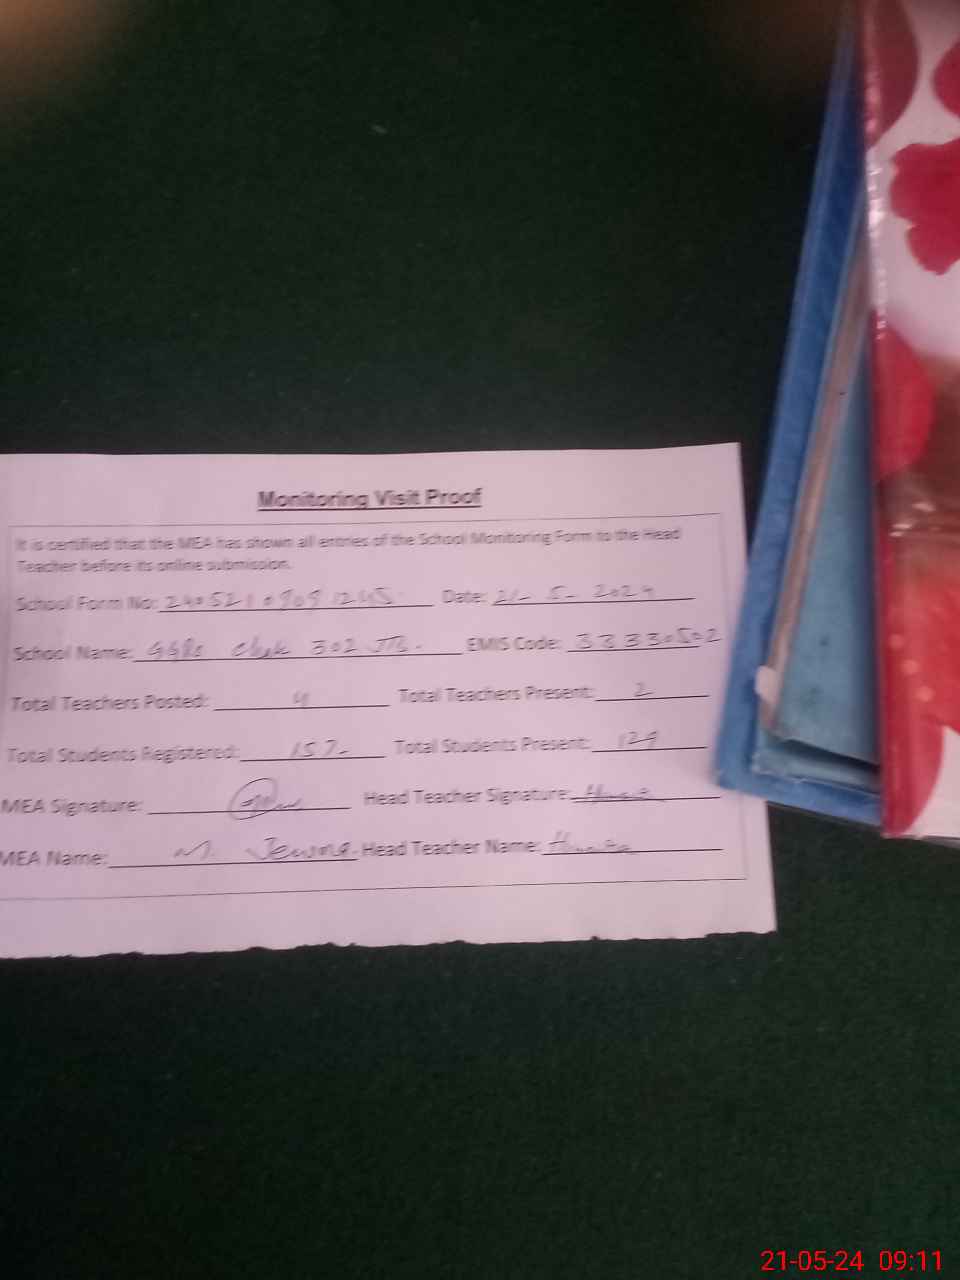 Monitoring Visit Proof
It is certified that the MEA has shown all entries of the School Monitoring Form to the Head
Teacher before its online submission.
School Form No: Date: 21- 5- 2024
School Name: 302 JB. EMIS Code: 33330502
Total Teachers Posted: 4 Total Teachers Present: 2
Total Students Registered: 157- Total Students Present: 129
MEA Signature: Head Teacher Signature:
MEA Name: M. Head Teacher Name:
21-05-24 09:11